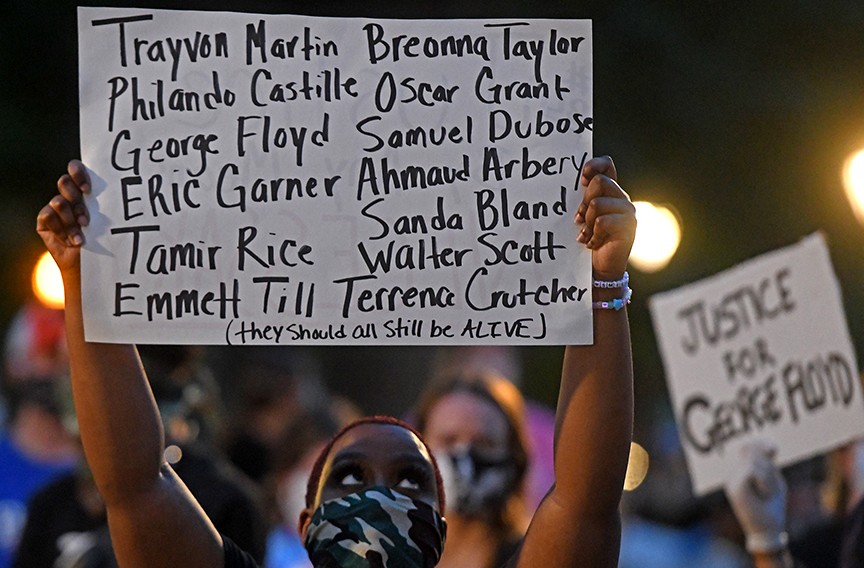 Trayvon Martin Breonna Taylor
Philando Castille Oscar Grant
George Floyd Samuel Dubose
ERic Garner Ahmaud Arbery
Sanda Bland
Tamir Rice Walter Scott
Emmett Till Terrence Crutcher
(they should all still be ALIVE)
JUSTICE
FOR
GEORGE FLOYD